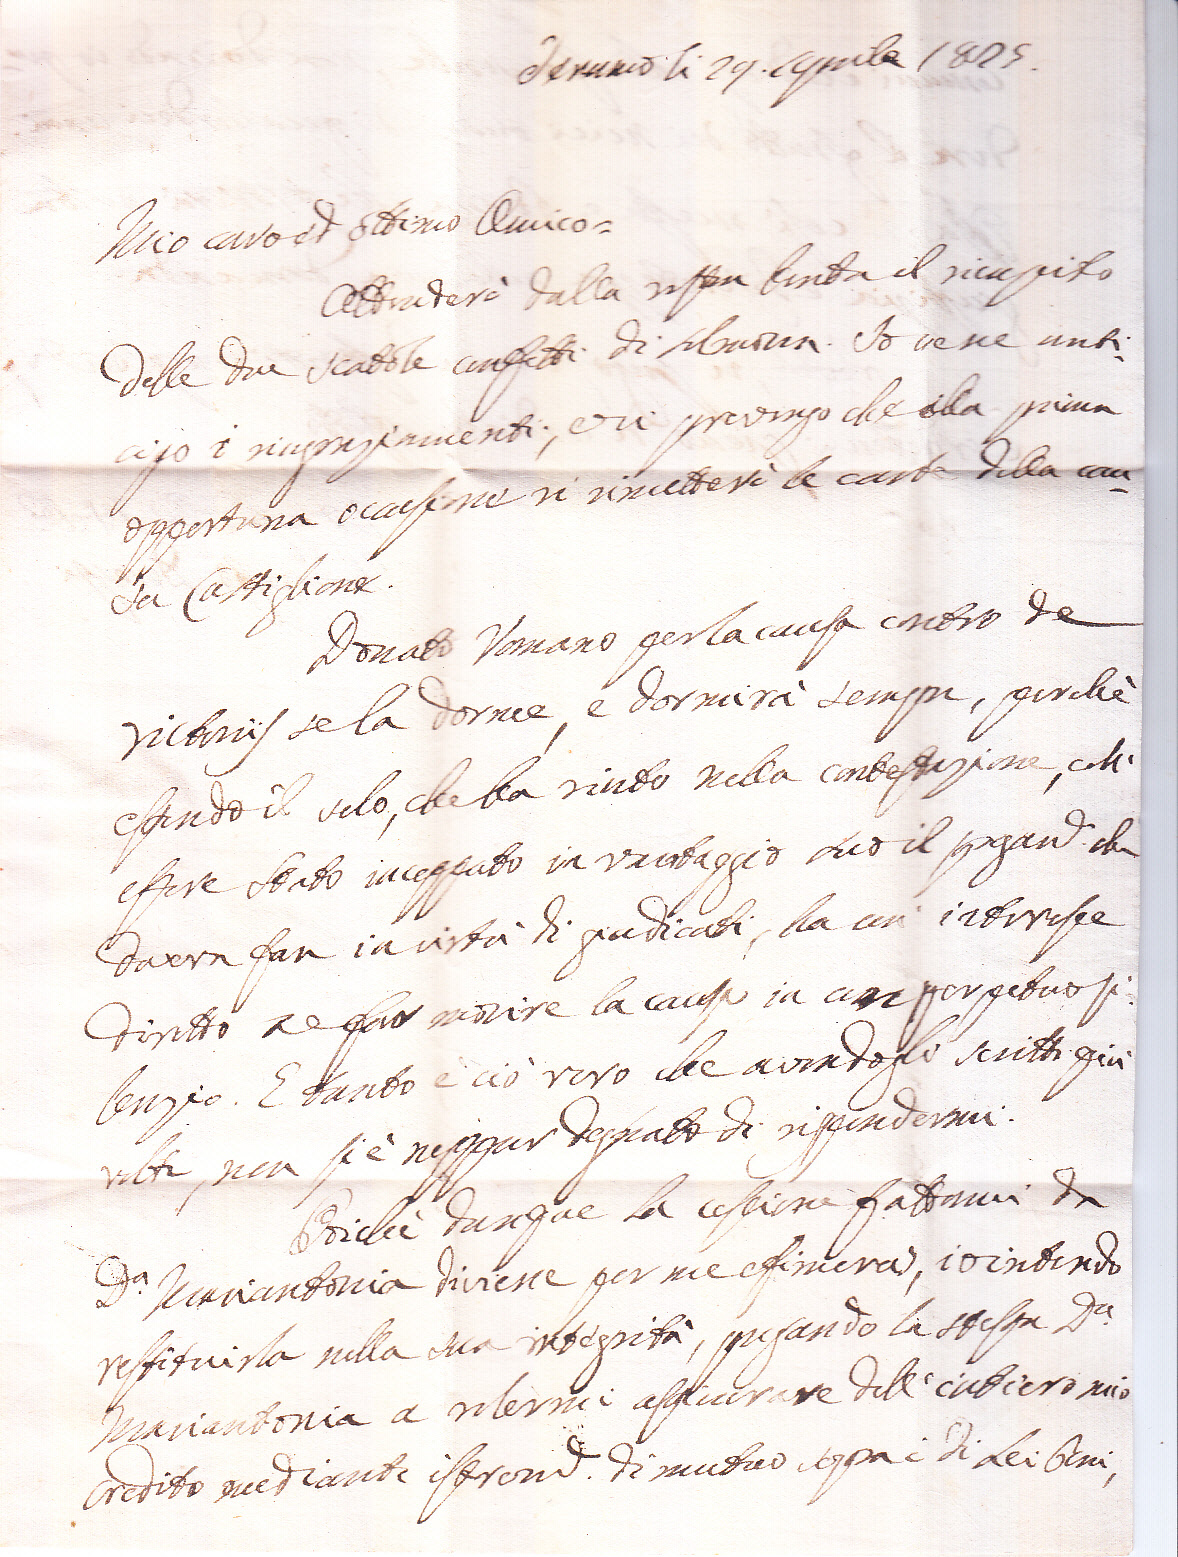 Teramo li 29. Aprile 1825.
Mio caro ed ottimo Amico =
Attenderò dalla vostra bontà il ricapito
delle due scatole confetti di Sulmona. Io ve ne anti-
cipo i ringraziamenti, e vi prevengo che alla prima
opportuna occasione vi rimetterò le carte della cau-
sa Castiglione.
Donato Vomano per la causa contro de
Victoriis se la dorme, e dormirà sempre, perchè
essendo il solo, che ha vinto nella contestazione, coll'
essere stato inceppato in vantaggio suo il pagam. che
doveva fare in virtù di giudicati, ha un interesse
diretto a far morire la causa in un perpetuo si-
lenzio. E tanto è ciò vero che avendogli scritto più
volte, non si è neppur degnato di rispondermi.
Poichè dunque la cessione fattami da
D.a Mariantonia diviene per me efimera, io intendo
restituirla nella sua integrità, pregando la stessa D.a
Mariantonia a volermi assicurare dell'intiero mio
credito mediante istrom. di mutuo sopra i di Lei beni,